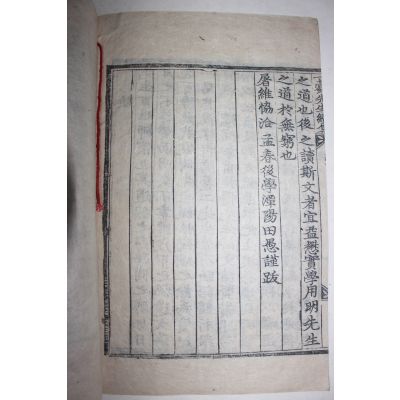 之道也後之讀斯文者宜益懋實學用明先生
之道於無窮也
屠維協洽孟春後學潭陽田愚謹跋